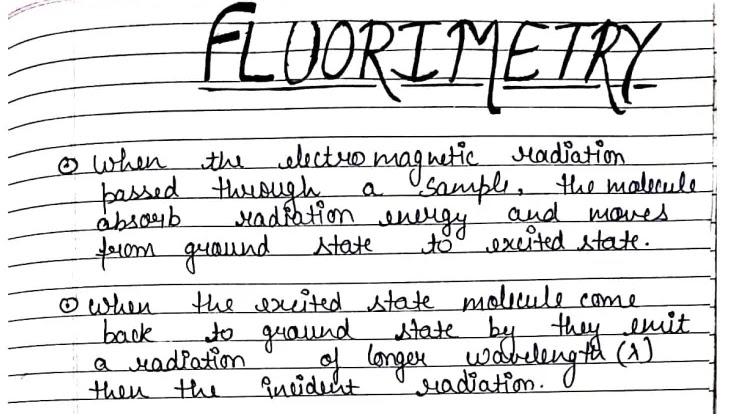 FLUORIMETRY
⊙ When the electromagnetic radiation
passed through a sample, the molecule
absorb radiation energy and moves
from ground state to excited state.
⊙ When the excited state molecule come
back to ground state by they emit
a radiation of longer wavelength (λ)
then the incident radiation.